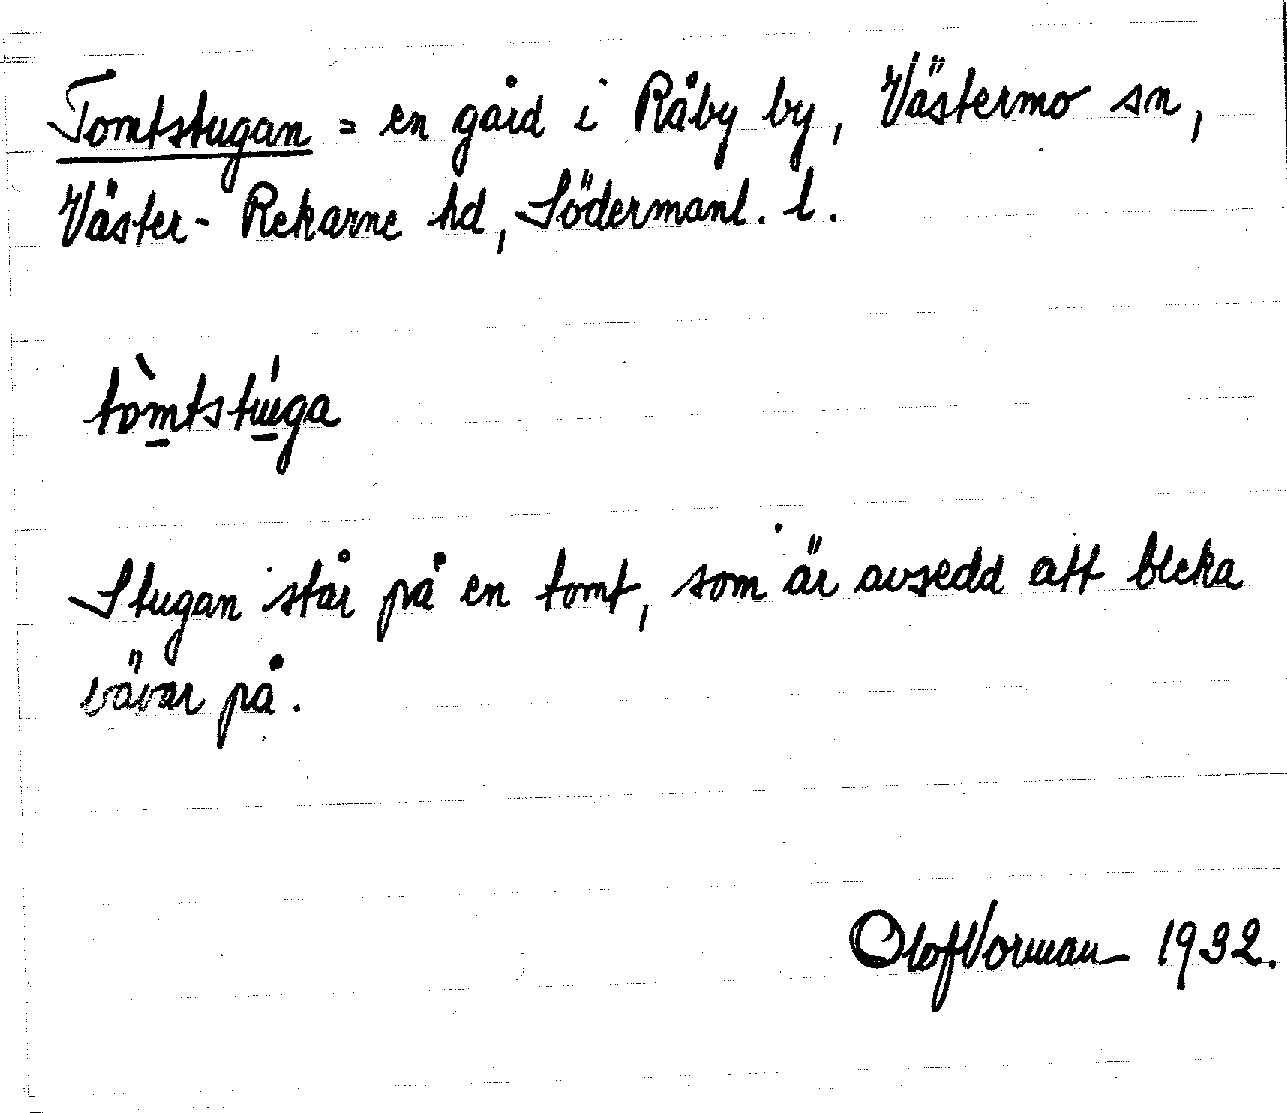 Tomtstugan = en gård i Råby by, Västermo sn,
Väster-Rekarne hd, Södermanl. l.
tòmtstúga
Stugan står på en tomt, som är avsedd att bleka
vävar på.
Olof Norman 1932.